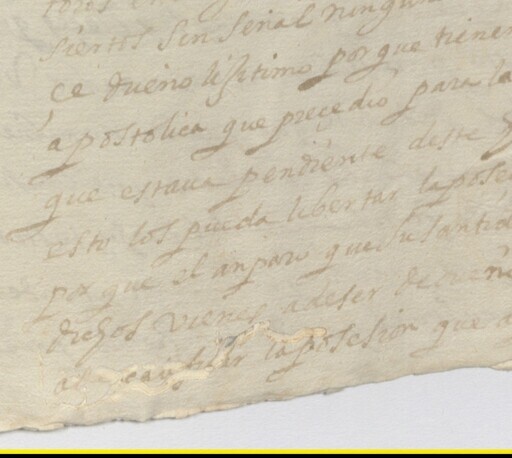 sientos sin señal ningun
çe dueño lisitimo porque tienen
apostolica que preçedio para la
que estaua pendiente deste
esto los pueda libertar la pose
por que el anparo que su santid
dichos vienes a deser de
la posesion que a